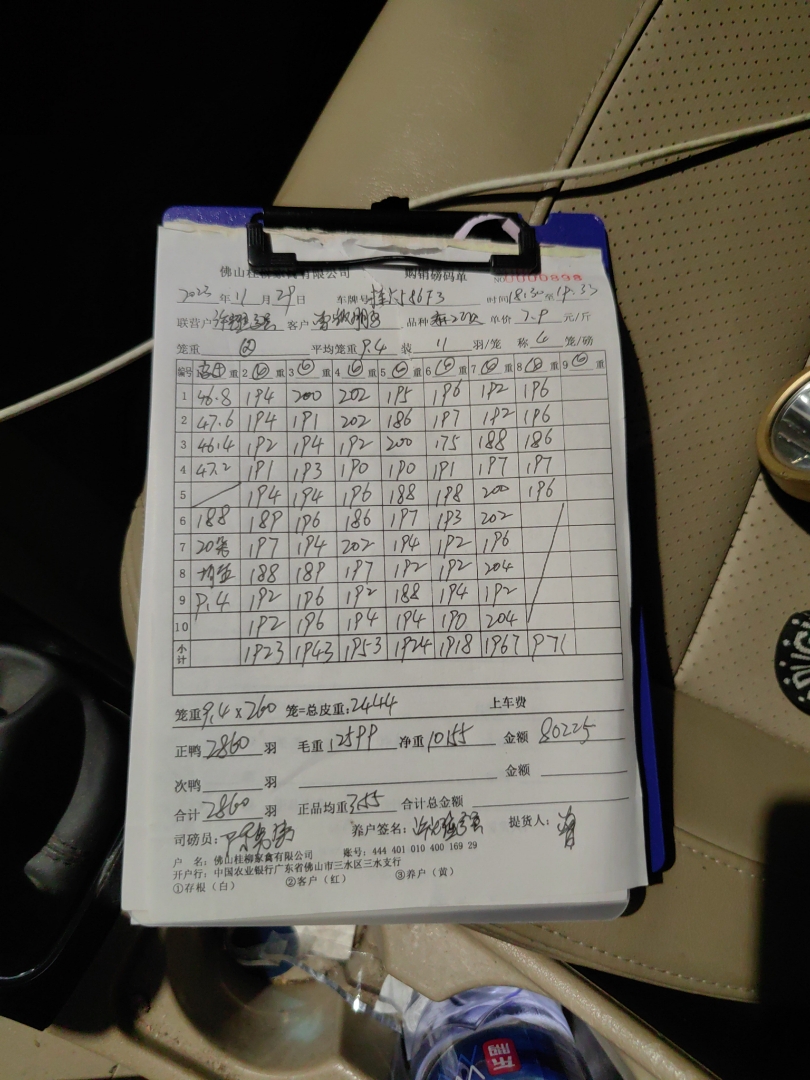 佛山桂柳家禽有限公司 购销磅码单 NO 0000898
2023 年 11 月 29 日 车牌号 58673 时间 18:30 至 19:33
联营户 客户 品种 单价 7.9 元/斤
笼重 平均笼重 9.4 装 11 羽/笼 称 4 笼/磅
编号 1 重 2 重 3 重 4 重 5 重 6 重 7 重 8 重 9 重
1 46.8 194 200 202 195 196 192 196
2 47.6 194 191 202 186 197 192 196
3 46.4 192 194 192 200 175 188 186
4 47.2 191 193 190 190 191 197 197
5 194 194 196 188 198 200 196
6 188 189 196 186 197 193 202
7 20笼 197 194 202 194 192 196
8 均重 188 189 197 192 192 204
9 9.4 192 196 192 188 194 192
10 192 196 194 194 190 204
小计 1923 1943 1953 1924 1918 1967 971
笼重 9.4 × 260 笼=总皮重: 2444 上车费
正鸭 2860 羽 毛重 12599 净重 10155 金额 80225
次鸭 羽 金额
合计 2860 羽 正品均重 3.55 合计总金额
司磅员: 养户签名: 提货人:
户 名: 佛山桂柳家禽有限公司 账号: 444 401 010 400 169 29
开户行: 中国农业银行广东省佛山市三水区三水支行
①存根(白) ②客户(红) ③养户(黄)
东鹏